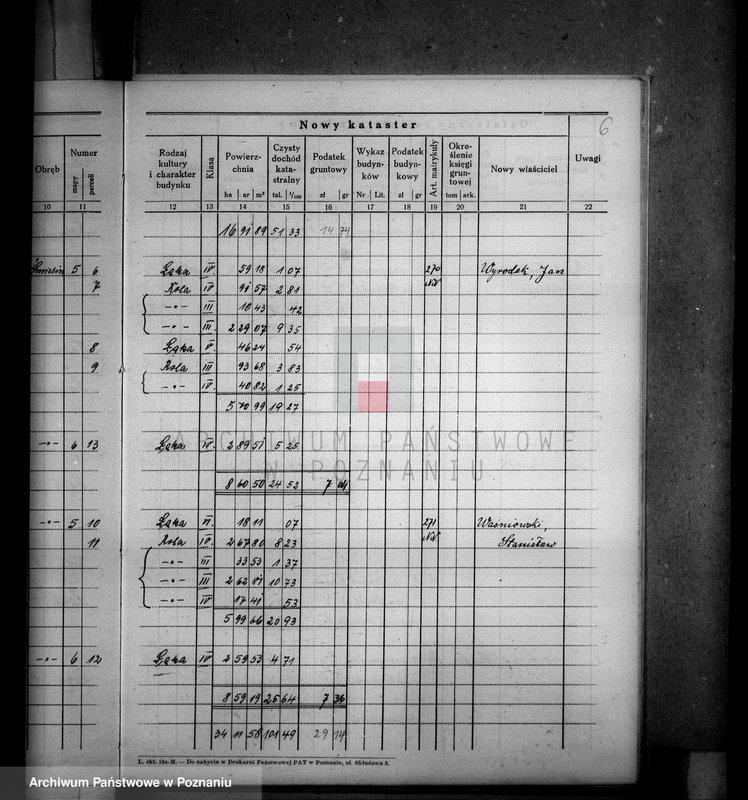 6
Nowy kataster
Obręb
Numer
mapy
parceli
Rodzaj kultury i charakter budynku
Klasa
Powierzchnia
ha ar m²
Czysty dochód katastralny
tal. 1/100
Podatek gruntowy
zł gr
Wykaz budynków
Nr Lit.
Podatek budynkowy
zł gr
Art. matrykuły
Określenie księgi gruntowej
tom ark.
Nowy właściciel
Uwagi
10 11 12 13 14 15 16 17 18 19 20 21 22
16 91 89 51 33 14 74
5 6 Łąka IV. 59 18 1 07 270 Wyrodek, Jan
7 Rola IV 91 57 2 81
-"- III 10 43 42
-"- III. 2 29 07 9 35
8 Łąka V. 46 24 54
9 Rola III 93 68 3 83
-"- IV. 40 82 1 25
5 70 99 19 27
-"- 6 13 Łąka IV. 2 89 51 5 25
8 60 50 24 52 7 04
-"- 5 10 Łąka VI. 18 11 07 271 Waśniowski,
11 Rola IV. 2 67 80 8 23 Stanisław
-"- III 33 53 1 37
-"- III 2 62 81 10 73
-"- IV 17 41 53
5 99 66 20 93
-"- 6 12 Łąka IV 2 59 53 4 71
8 59 19 25 64 7 36
34 11 58 101 49 29 14
L. skł. 12a-M. — Do nabycia w Drukarni Państwowej PAT w Poznaniu, ul. Składowa 3.
ARCHIWUM PAŃSTWOWE
W POZNANIU
Archiwum Państwowe w Poznaniu